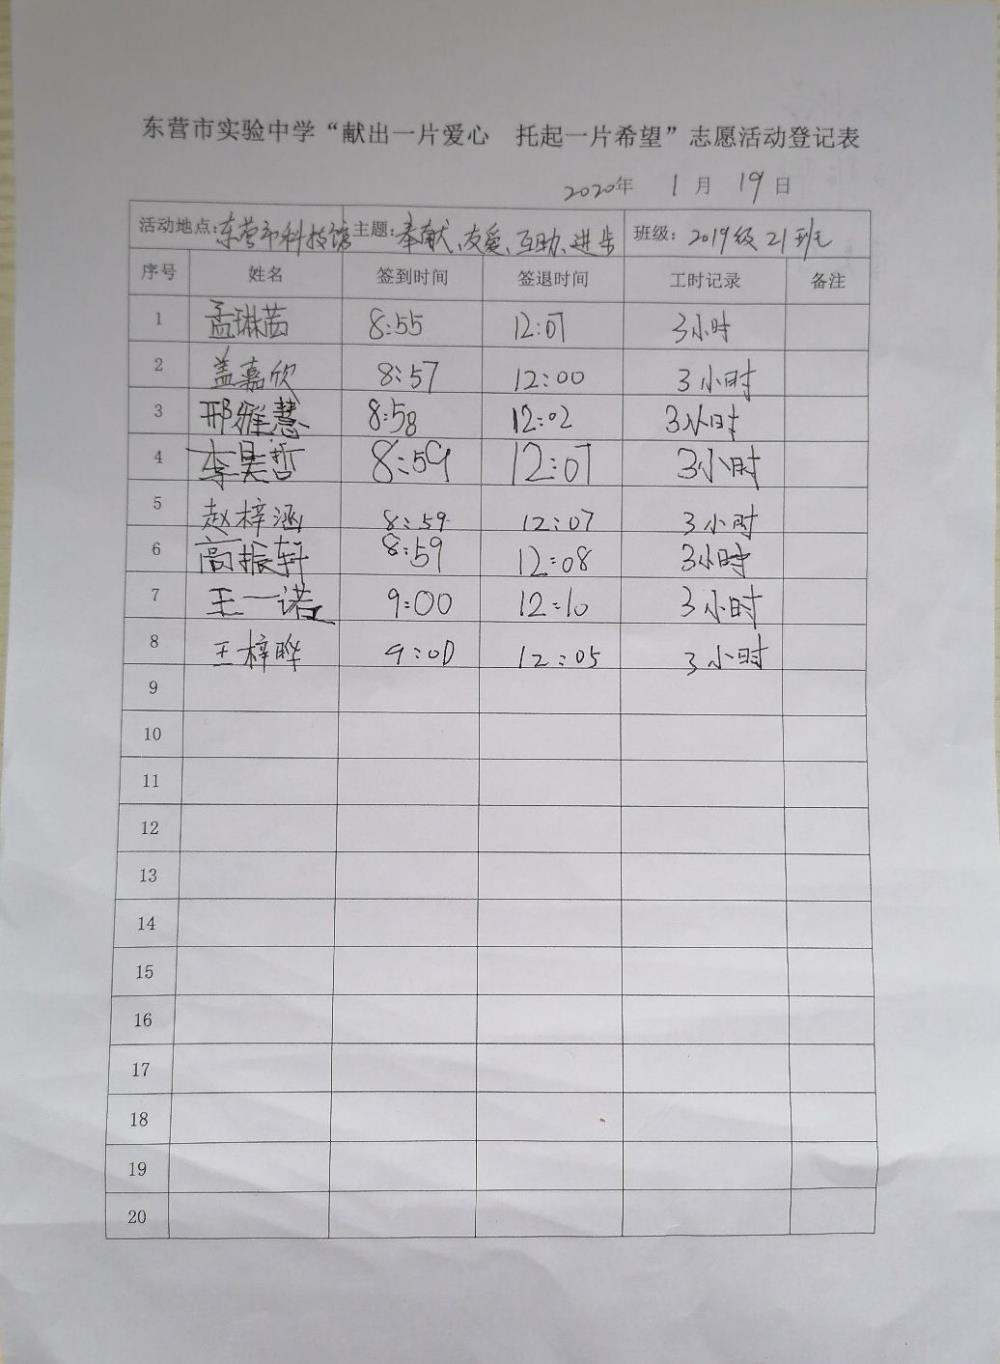 东营市实验中学“献出一片爱心　托起一片希望”志愿活动登记表
2020年 1月 19日
活动地点:东营市科技馆 主题:奉献、友爱、互助、进步 班级: 2019级21班
序号 姓名 签到时间 签退时间 工时记录 备注
1 孟琳茜 8:55 12:01 3小时
2 盖嘉欣 8:57 12:00 3小时
3 邢雅慧 8:58 12:02 3小时
4 李昊哲 8:59 12:01 3小时
5 赵梓涵 8:59 12:07 3小时
6 高振轩 8:59 12:08 3小时
7 王一诺 9:00 12:10 3小时
8 王梓晔 9:00 12:05 3小时
9
10
11
12
13
14
15
16
17
18
19
20